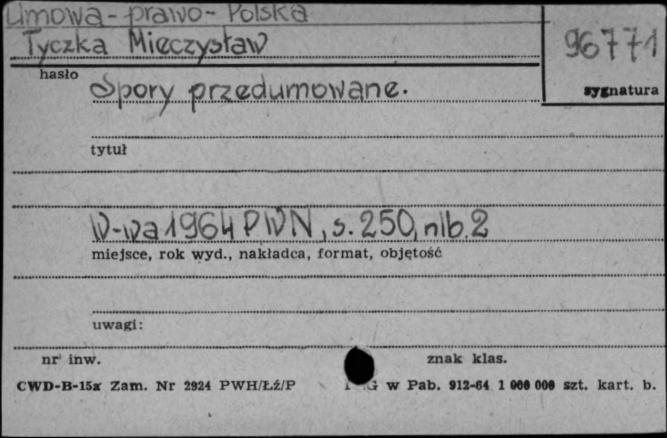 Umowa - prawo - Polska
Tyczka Mieczysław
96771
hasło
sygnatura
Spory przedumowane.
tytuł
W-wa 1964 PWN, s. 250, nlb. 2
miejsce, rok wyd., nakładca, format, objętość
uwagi:
nr inw.
znak klas.
CWD-B-15x Zam. Nr 2924 PWH/Łź/P
G w Pab. 912-64 1 000 000 szt. kart. b.